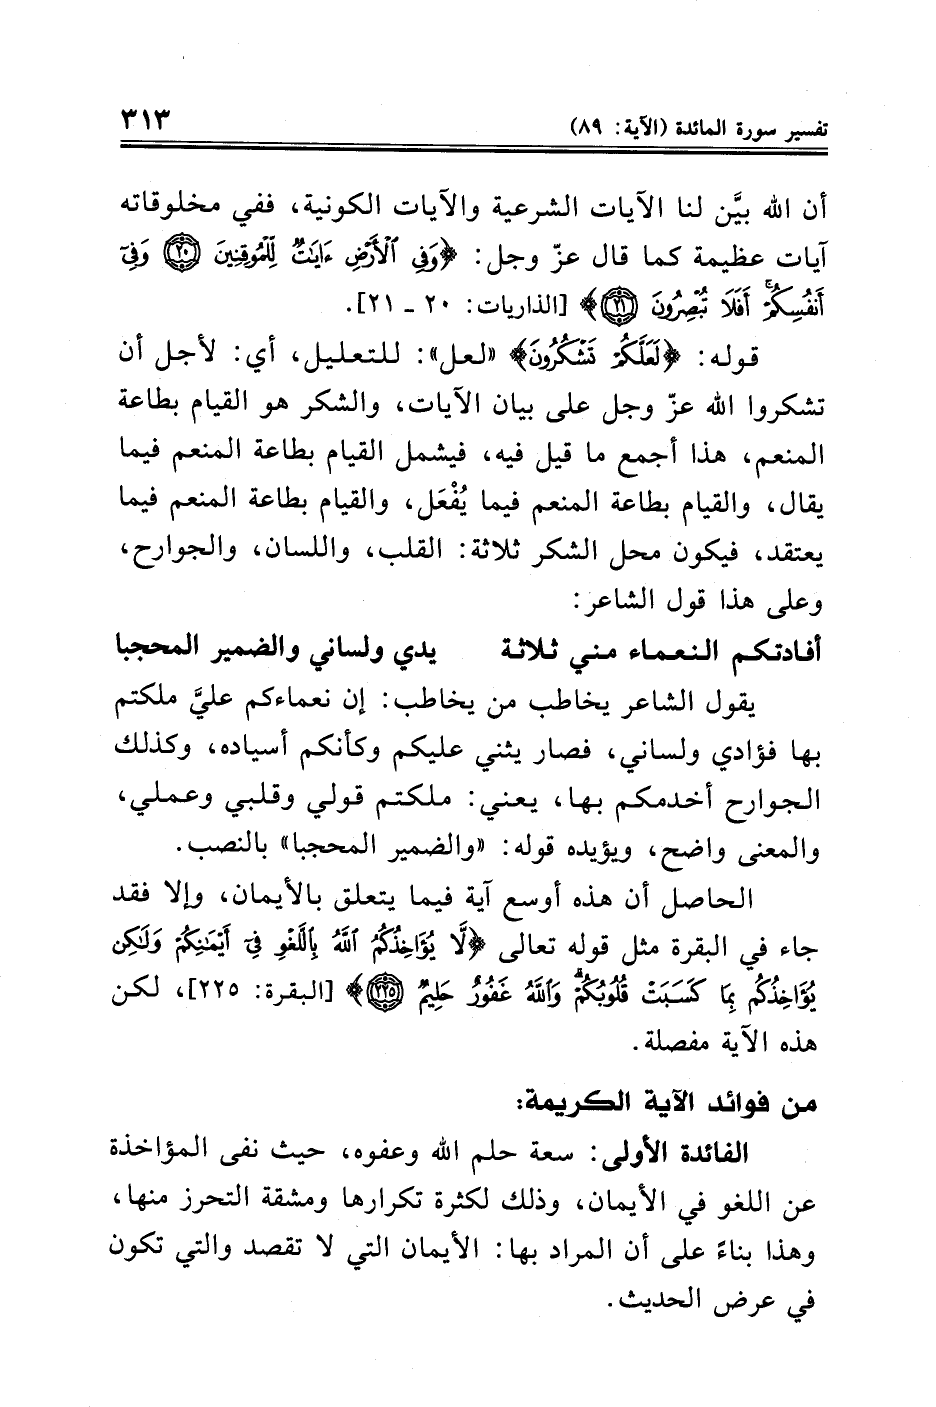 تفسير سورة المائدة (الآية: ٨٩) ٣١٣
أن الله بيَّن لنا الآيات الشرعية والآيات الكونية، ففي مخلوقاته
آيات عظيمة كما قال عزّ وجل: ﴿وَفِي ٱلْأَرْضِ ءَايَٰتٌ لِّلْمُوقِنِينَ ٢٠ وَفِىٓ
أَنفُسِكُمْۚ أَفَلَا تُبْصِرُونَ ٢١﴾ [الذاريات: ٢٠ ـ ٢١].
قوله: ﴿لَعَلَّكُمْ تَشْكُرُونَ﴾ «لعل»: للتعليل، أي: لأجل أن
تشكروا الله عزّ وجل على بيان الآيات، والشكر هو القيام بطاعة
المنعم، هذا أجمع ما قيل فيه، فيشمل القيام بطاعة المنعم فيما
يقال، والقيام بطاعة المنعم فيما يُفْعَل، والقيام بطاعة المنعم فيما
يعتقد، فيكون محل الشكر ثلاثة: القلب، واللسان، والجوارح،
وعلى هذا قول الشاعر:
أفادتكم النعماء مني ثلاثة يدي ولساني والضمير المحجبا
يقول الشاعر يخاطب من يخاطب: إن نعماءكم عليَّ ملكتم
بها فؤادي ولساني، فصار يثني عليكم وكأنكم أسياده، وكذلك
الجوارح أخدمكم بها، يعني: ملكتم قولي وقلبي وعملي،
والمعنى واضح، ويؤيده قوله: «والضمير المحجبا» بالنصب.
الحاصل أن هذه أوسع آية فيما يتعلق بالأيمان، وإلا فقد
جاء في البقرة مثل قوله تعالى ﴿لَّا يُؤَاخِذُكُمُ ٱللَّهُ بِٱللَّغْوِ فِىٓ أَيْمَٰنِكُمْ وَلَٰكِن
يُؤَاخِذُكُم بِمَا كَسَبَتْ قُلُوبُكُمْۗ وَٱللَّهُ غَفُورٌ حَلِيمٌ ٢٢٥﴾ [البقرة: ٢٢٥]، لكن
هذه الآية مفصلة.
من فوائد الآية الكريمة:
الفائدة الأولى: سعة حلم الله وعفوه، حيث نفى المؤاخذة
عن اللغو في الأيمان، وذلك لكثرة تكرارها ومشقة التحرز منها،
وهذا بناءً على أن المراد بها: الأيمان التي لا تقصد والتي تكون
في عرض الحديث.